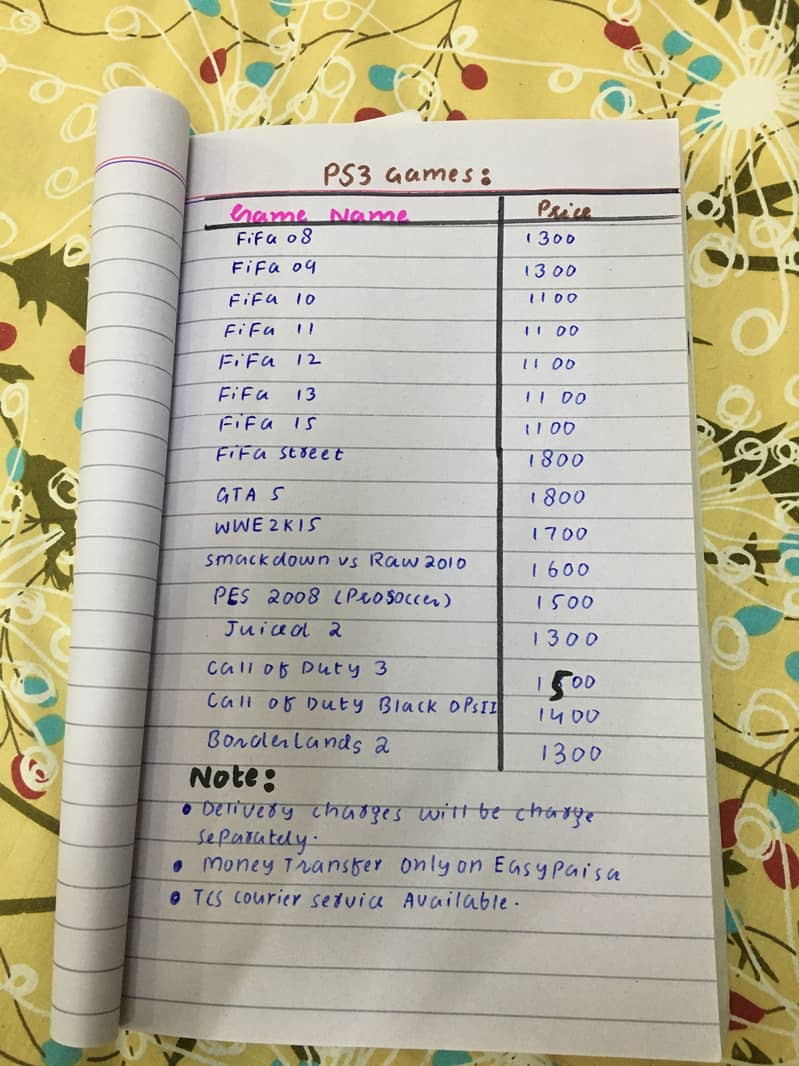 PS3 Games:
Game Name Price
FiFa 08 1300
FiFa 09 1300
FiFa 10 1100
FiFa 11 1100
FiFa 12 1100
FiFa 13 1100
FiFa 15 1100
FiFa street 1800
GTA 5 1800
WWE2K15 1700
smackdown vs Raw 2010 1600
PES 2008 (ProSoccer) 1500
Juiced 2 1300
Call of Duty 3 1500
Call of Duty Black OPsII 1400
Borderlands 2 1300
Note:
• Delivery charges will be charge
separately.
• Money Transfer only on Easypaisa
• TCS courier service Available.